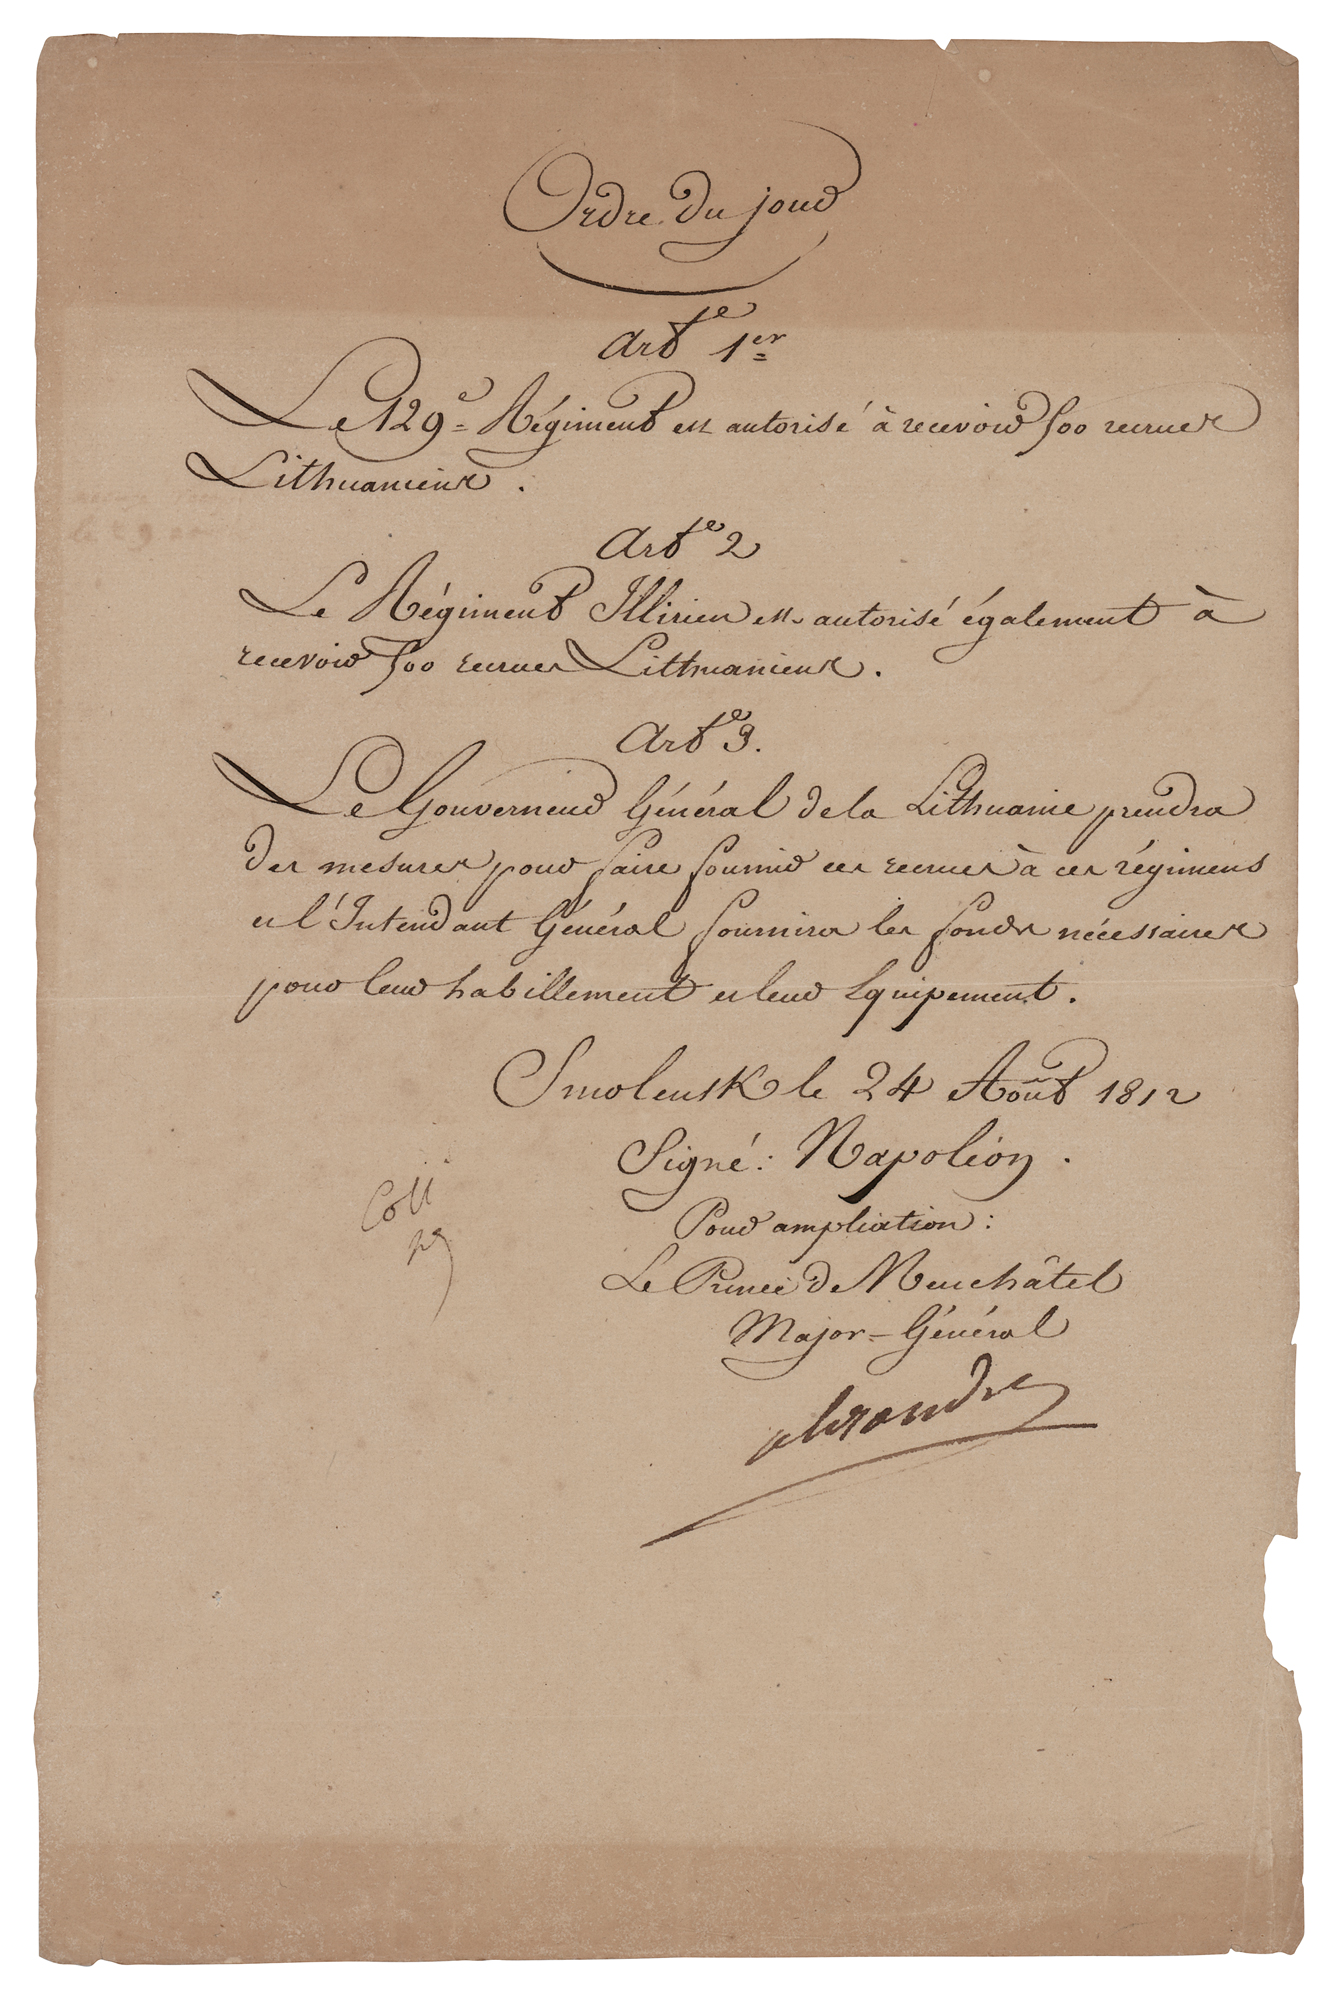 Ordre du jour
Art.e 1er
Le 129e Régiment est autorisé à recevoir 500 recrues
Lithuaniens.
Arte 2
Le Régiment Illirien est autorisé également à
recevoir 500 recrues Lithuaniens.
Arte 3.
Le Gouverneur Général de la Lithuanie prendra
des mesures pour faire fournir ces recrues à ces régimens
et l'Intendant Général fournira les fonds nécessaires
pour leur habillement et leur équipement.
Smolensk le 24 Août 1812
Signé: Napoléon.
Pour ampliation:
Le Prince de Neuchâtel
Major-Général
Alexandre
Coll